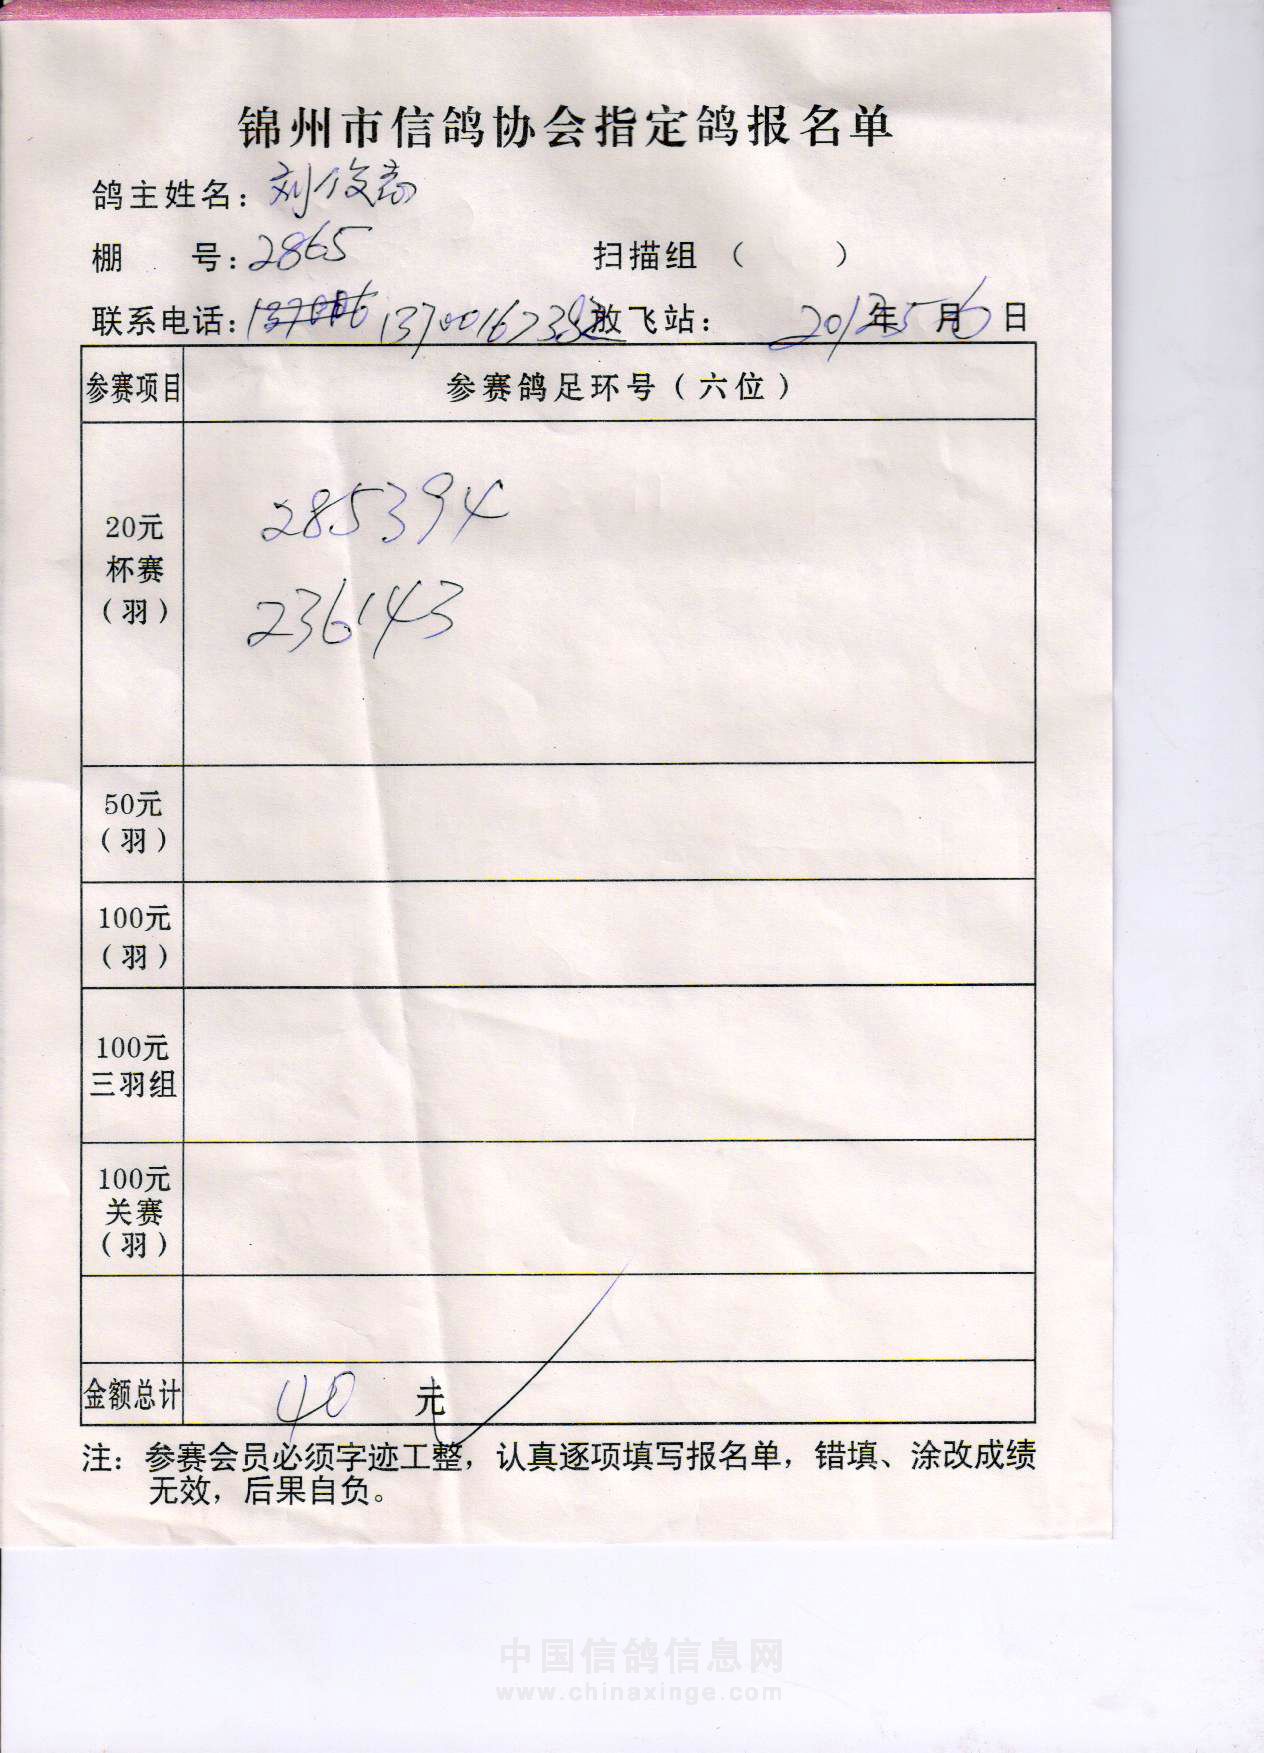 锦州市信鸽协会指定鸽报名单
鸽主姓名：刘俊
棚 号：2865 扫描组（ ）
联系电话： 放飞站： 2012年5月6日
参赛项目 参赛鸽足环号（六位）
20元
杯赛
（羽）
285394
236143
50元
（羽）
100元
（羽）
100元
三羽组
100元
关赛
（羽）
金额总计 40 元
注：参赛会员必须字迹工整，认真逐项填写报名单，错填、涂改成绩
无效，后果自负。
中国信鸽信息网
www.chinaxinge.com